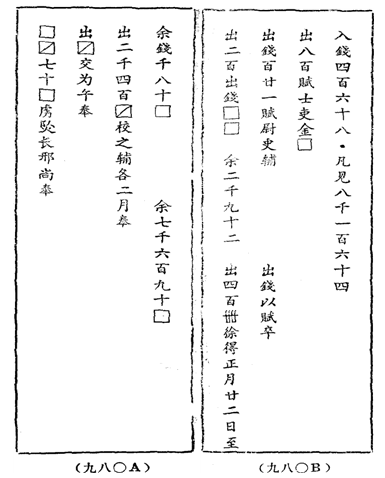 入錢四百六十八・凡見八千一百六十四
出八百賦士吏金□
出錢百廿一賦尉史輔　出錢以賦卒
出二百出錢□□　余二千九十二　出四百卌徐得正月廿二日至
(九八〇B)
余錢千八十□　余七千六百九十□
出二千四百⧄校之辅各二月奉
出⧄交为午奉
□⧄七十□虏坠长邢尚奉
(九八〇A)